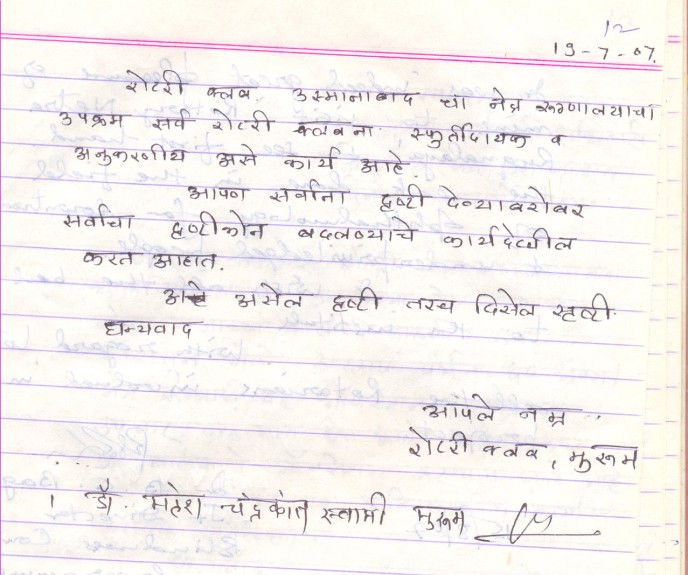 12
19-7-07.
रोटरी क्लब उस्मानाबाद चा नेत्र रूग्णालयाचा
उपक्रम सर्व रोटरी क्लबना, स्फुर्तीदायक व
अनुकरणीय असे कार्य आहे.
आपण सर्वांना दृष्टी देण्याबरोबर
सर्वांचा दृष्टीकोन बदलण्याचे कार्य देखील
करत आहात.
असेल दृष्टी तरच दिसेल सृष्टी.
धन्यवाद
आपले नम्र
रोटरी क्लब, मुरूम
। डॉ. महेश चंद्रकांत स्वामी मुरूम